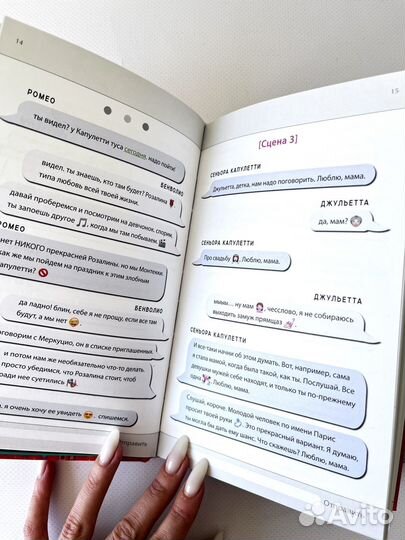 14
РОМЕО
ты видел? у Капулетти туса сегодня, надо пойти!
БЕНВОЛИО
видел. ты знаешь, кто там будет? Розалина 🌹
типа любовь всей твоей жизни.
давай проберемся и посмотрим на девчонок, спорим,
ты запоешь другое 🎵, когда мы там побываем. 🎬
РОМЕО
нет НИКОГО прекрасней Розалины, но мы Монтекки.
как же мы пойдем на праздник к этим злобным
Капулетти? 🚫
БЕНВОЛИО
да ладно! блин, себе я не прощу, если все там
будут, а мы нет 😅.
поговорим с Меркуцио, он в списке приглашенных.
и потом нам же необязательно что-то делать.
просто убедимся, что Розалина стоит, чтоб
ради нее суетились
я очень хочу ее увидеть 😍, спишемся.
отправить
15
[Сцена 3]
СЕНЬОРА КАПУЛЕТТИ
Джульетта, детка, нам надо поговорить. Люблю, мама.
ДЖУЛЬЕТТА
да, мам?
СЕНЬОРА КАПУЛЕТТИ
Про свадьбу 👰. Люблю, мама.
ДЖУЛЬЕТТА
мммм… ну мам, чесслово, я не собираюсь
выходить замуж прямщаз
СЕНЬОРА КАПУЛЕТТИ
И все-таки начни об этом думать. Вот, например, сама
я стала мамой, когда была такой, как ты. Послушай. Все
девушки мужей себе находят, и только ты по-прежнему
одна 💘. Люблю, мама.
Слушай, короче. Молодой человек по имени Парис
просит твоей руки 💍. Это прекрасный вариант. Я думаю,
ты могла бы дать ему шанс. Что скажешь? Люблю, мама.
Отправить
Avito